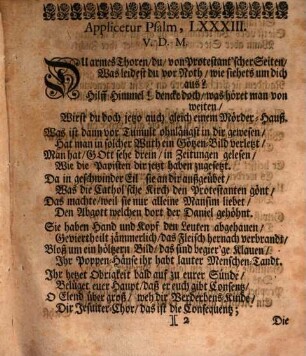 Applicetur Psalm, LXXXIII.
V. D. M.
DU armes Thoren / du / von Protestant'scher Seiten /
Was leidest du vor Noth / wie siehets um dich
aus?
Hilff Himmel! dencke doch / was höret man von
weiten /
Wirst du doch jetzo auch gleich einem Mörder-Hauß.
Was ist dann vor Tumult ohnlängst in dir gewesen /
Hat man in solcher Wuth ein Götzen-Bild verletzt /
Man hat / GOtt sehe drein / in Zeitungen gelesen /
Wie die Papisten dir jetzt haben zugesetzt.
Da in geschwinder Eil sie an dir außgeübet /
Was die Cathol'sche Kirch den Protestanten gönt /
Das machte / weil sie nur alleine Mansim liebet /
Den Abgott welchen dort der Daniel gehöhnt.
Sie haben Hand und Kopf den Leuten abgehauen /
Geviertheilt jämmerlich / das Fleisch hernach verbrandt /
Bloß um ein höltzern Bild / daß und begier'ge Klauen /
Ihr Poppen-Hänse ihr habt lauter Menschen-Tandt.
Ihr hetzet Obrigkeit bald auf zu eurer Sünde /
Belüget euer Haupt / daß er euch gibt Consens /
O Elend über groß / weh dir Verderbens Kinde /
Dir Jesuiter-Chor / was ist die Consequentz;
)( 2 Die